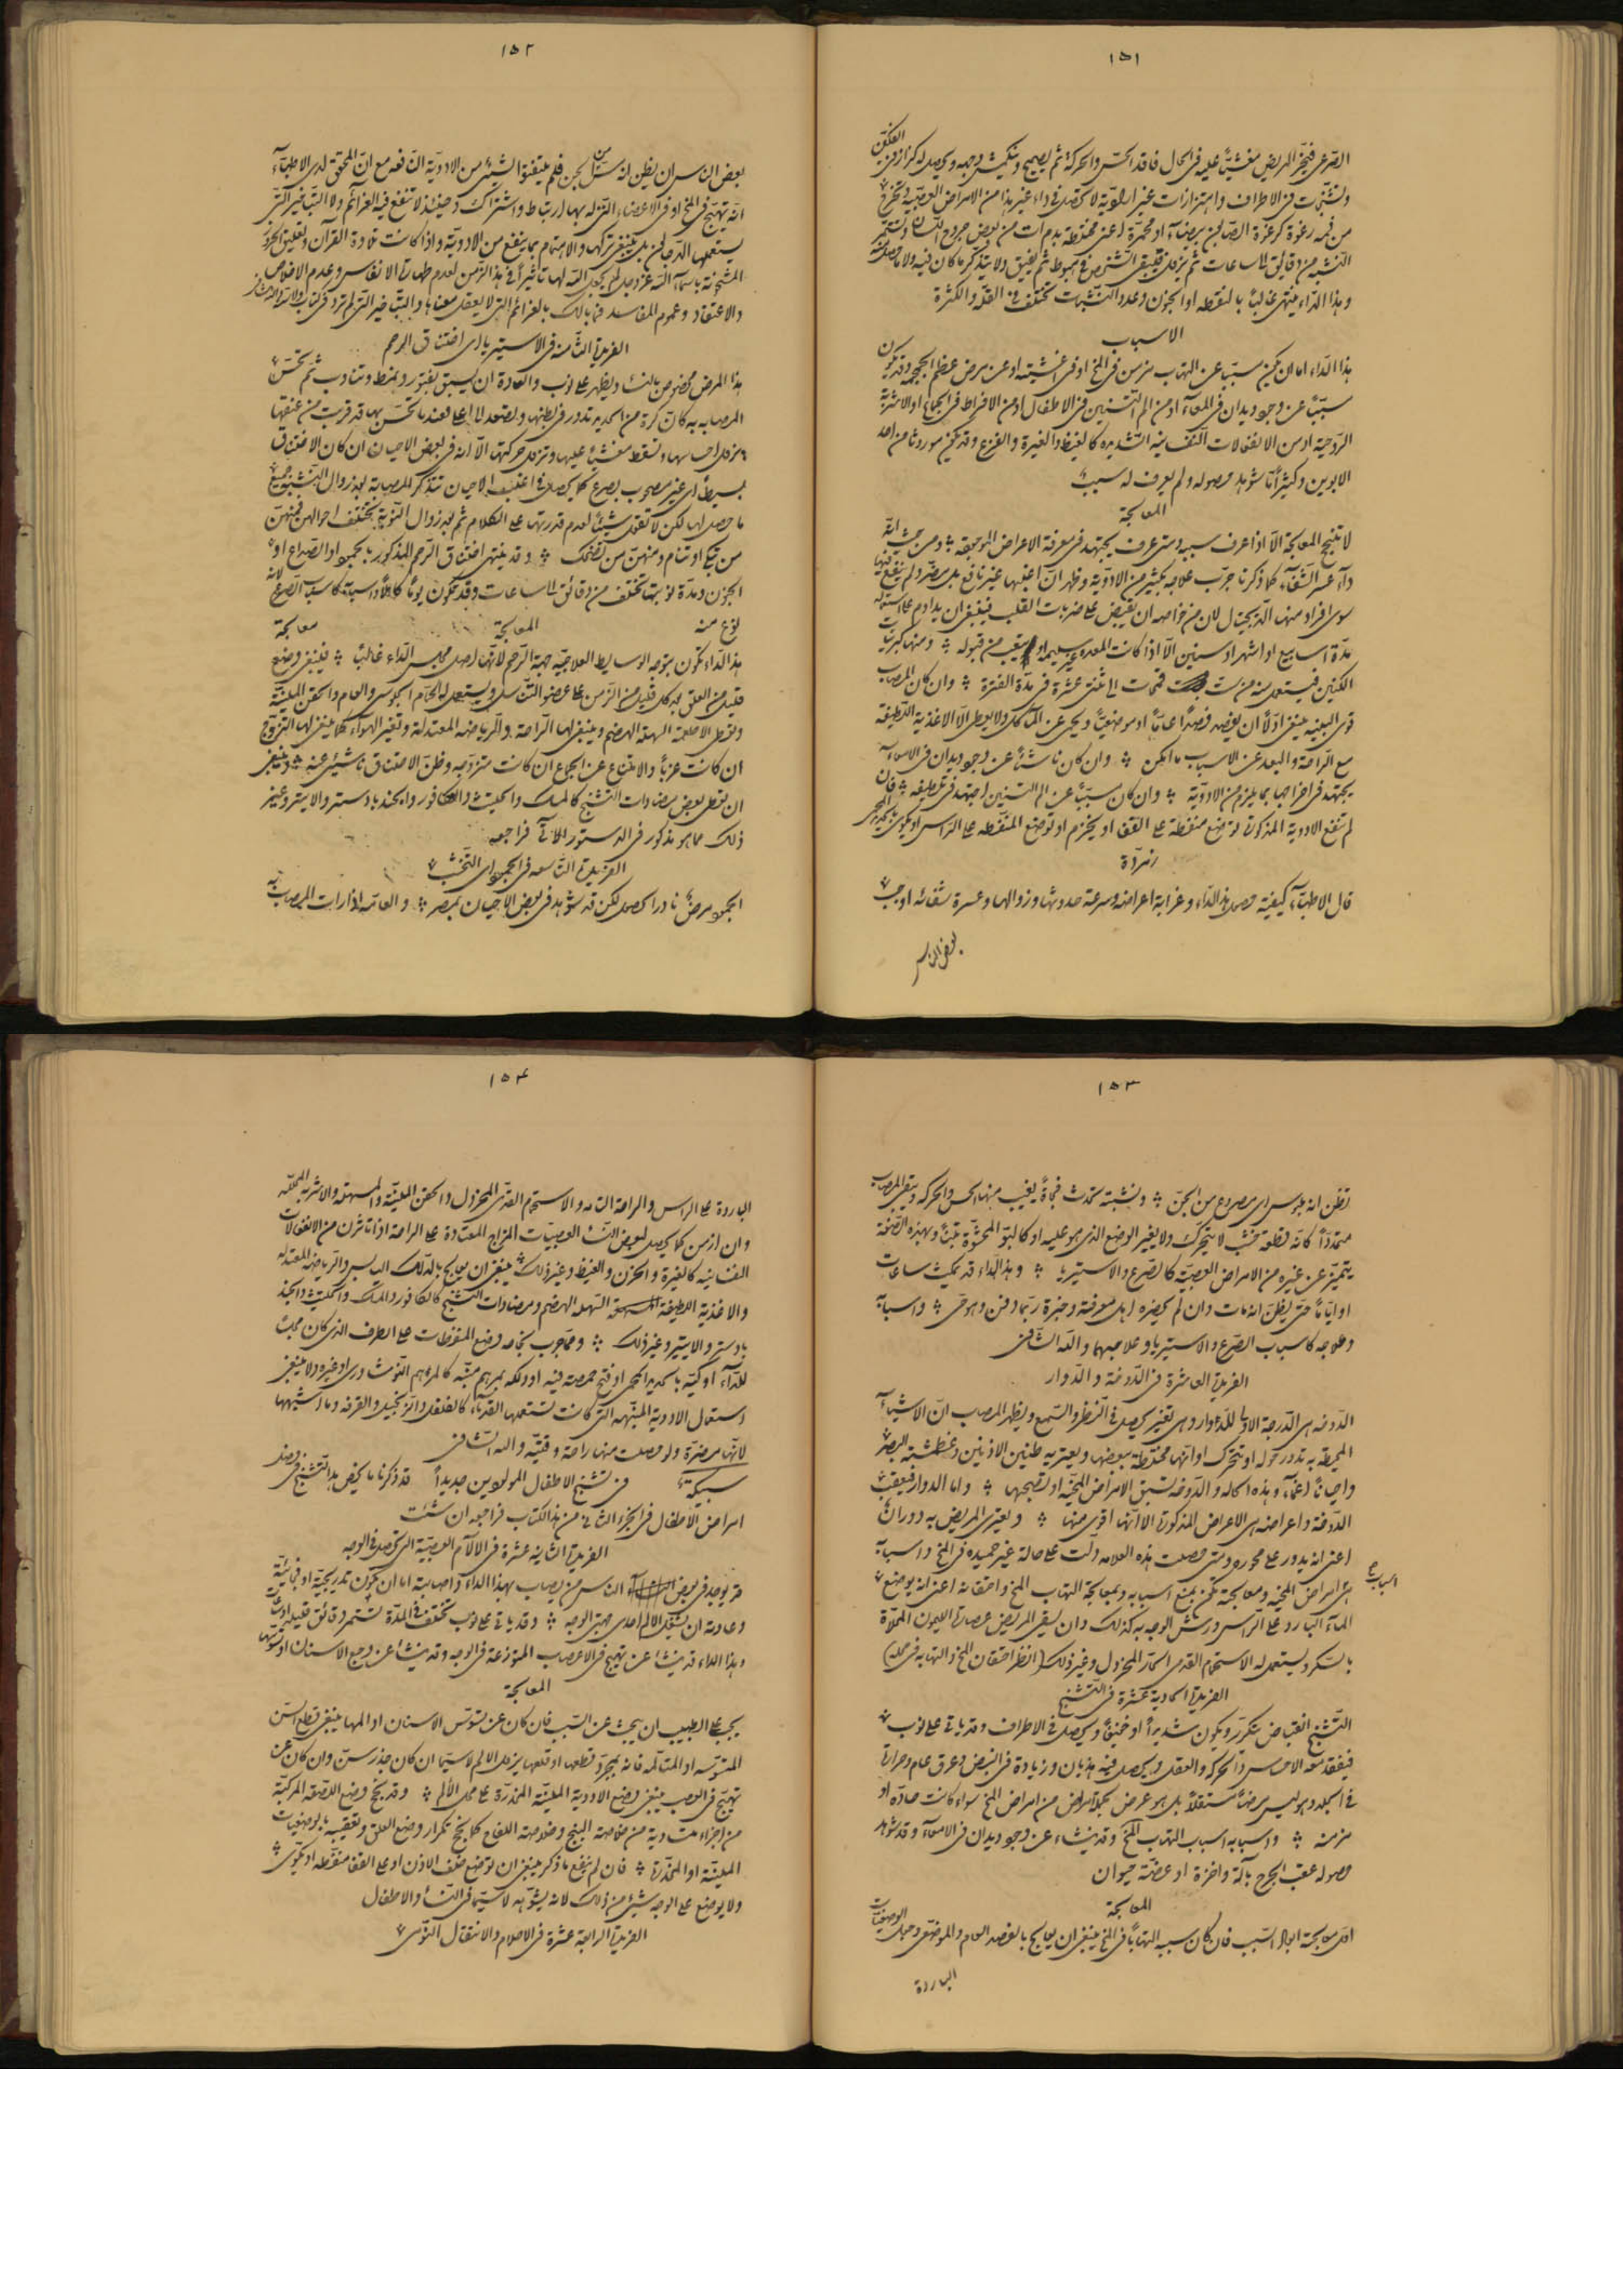 ١٥١
الصرعى فيخر المريض مغشيّاً عليه فى الحال فاقد الحسّ والحركة ثم يصيح وينكمش وجهه ويحصل له كزاز فى الفكين
وتشنّجات فى الاطراف واهتزازات غير اراديّة لا تحصل فى داء غير هذا من الامراض العصبيّة وتخرج
من فمه رغوة كرغوة الصابون بيضآء او محمّرة اعنى مختلطة بدم آت من بعض جروح اللسان وتستمرّ
النوبة من دقائق الى ساعات ثم تزول فيبقى الشخص فى هبوط ثم يفيق ولا يتذكّر ما كان فيه ولا ما حصل منه
وهذا الدّاء ينتهى غالباً بالنقطه او الجنون وعدد التشنجات تختلف فى القلّة والكثرة
الاسباب
هذا الدّاء اما ان يكون مسبّبا عن التهاب مزمن فى المخ او فى اغشيته او عن مرض عظم الجمجمه وقد يكون
مسبّباً عن وجود ديدان فى المعآء او من الم التسنين فى الاطفال او من الافراط فى الجماع او الاشربة
الرّوحيّة او من الانفعالات النفسانيه الشديده كالغيظ والغيرة والفزع وقد يكون موروثا من احد
الابوين وكثيراً ما شوهد حصوله ولم يعرف له سبب
المعالجة
لا تنجح المعالجة الّا اذا عرف سببه ومتى عرف يجتهد فى معرفة الاعراض الموجوده ومن حيث انّه
دآء عسر الشّفآء كما ذكرنا جرّب علاجه بكثير من الادويّة وظهر انّ اغلبها غير نافع بل مضرّ ولم ينفع فيها
سوى افراد منها الديجيتال لان من خواصه ان يقبض على ضربات القلب فينبغى ان يداوم على استعماله
مدّة اسابيع او اشهر او سنين الّا اذا كانت المعده غير سليمه او يتعب من قبوله ومنها كبريتات
الكنين فيستعمل منه من ستّ قمحات الى ثنتى عشرة فى مدّة الفترة وان كان المصاب
قوى البنيه ينبغى اوّلاً ان يفصد فصداً عامّاً او موضعيّاً ويحمى عن المآكل ولا يعطى الّا الاغذية اللطيفة
مع الرّاحة والبعد عن الاسباب ما امكن وان كان ناشئاً عن وجود ديدان فى الامعآء
يجتهد فى اخراجها بما يلزم من الادويّة وان كان مسبّباً عن الم التسنين اجتهد فى تلطيفه فان
لم تنفع الادوية المذكورة توضع منفطة على القفا او يخزم او توضع المنفّطه على الرأس او تكوى بحديد محمى
زمرّدة
قال الاطبّآء كيفيّة حصول هذا الدّاء وغرابة اعراضه وسرعة حدوثها وزوالها وعسرة شفائه اوجب
بعض الناس
١٥٢
بعض الناس ان يظن انه مسّ من الجن فلم يلتفتوا الى شئى من الادويّة النافعه مع انّ المحقّق لدى الاطبّآء
انّه تهيّج فى المخ او فى الاعضآء التى له بها ارتباط واشتراك وحينئذ لا تنفع فيه العزائم ولا التباخير التى
يستعملها الدجالون بل ينبغى تركها والاهتمام بما ينفع من الادويّة واذا كانت تلاوة القرآن وتعليق الحروز
المشحونة باسمآء الله عزّ وجلّ لم يجعل الله لها تأثيراً فى هذا الزّمن لعدم طهارة الانفاس وعدم الاخلاص
والاعتقاد وعموم المفاسد فما بالك بالعزائم التى لا يعقل معناها والتباخير التى لم ترد فى كتاب ولا سنّة
الفريدة الثّامنه فى الاستيريا اى اختناق الرحم
هذا المرض مخصوص بالنسا ويظهر على نوب والعادة ان يسبق بفتور وتمطّ وتثاوب ثم تحسّ
المصابه به كانّ كرة من الحديد تدور فى بطنها وتصعد الى اعلى فعند ما تحسّ بها قد قربت من عنقها
يزول احساسها وتسقط مغشيّاً عليها وتزول حركتها الّا انّه فى بعض الاحيان ان كان الاختناق
بسيطاً اى غير مصحوب بصرع كما يحصل فى اغلب الاحيان تتذكّر المصابة بعد زوال التشنّج جميع
ما حصل لها لكن لا تقول شيئاً لعدم قدرتها على الكلام ثم بعد زوال النّوبة تختلف احوالهنّ فمنهنّ
من تبكى او تنام ومنهنّ من تضحك وقد ينتهى اختناق الرّحم المذكور بالجمود او الصّداع او
الجنون ومدّة نوبتها تختلف من دقائق الى ساعات وقد تكون يوماً كاملاً واسبابه كاسباب الصّرع لانّه
نوع منه المعالجة معالجة
هذا الدّاء تكون بتوجّه الوسايط العلاجيّه جهة الرّحم لانّها اصل مجلس الدّاء غالباً فينبغى وضع
قليل من العلق بعد كل قليل من الزّمن على عضو التناسل ويستعمل له الحمّام الجلوسى والعام والحقن المليّنة
وتعطى الاطعمة السهلة الهضم وينبغى لها الرّاحة والرّياضه المعتدلة وتغيّر الهوآء كما ينبغى لها التزوّج
ان كانت عزباً والامتناع عن الجماع ان كانت متزوّجه وظنّ الاختناق ناشئى عنه وينبغى
ان تعطى بعض مضادات التشنّج كالمسك والحلتيت والكافور والجند بادستر والايتر وغير
ذلك مما هو مذكور فى الدستور الآتى فراجعه
الفريدة التّاسعه فى الجمود اى التخشّب
الجمود مرض نادر الحصول لكن قد شوهد فى بعض الاحيان بمصر والعامّه اذا رات المصاب به
١٥٣
تظن انه ملموس اى مصروع من الجنّ ونشبته تحدث فجأةً يغيب منها الحس والحركه ويبقى المصاب
متمدّداً كانّه قطعة خشب لا يتحرّك ولا يغيّر الوضع الذى هو عليه او كالبوّ المحشوّة تبناً وبهذه الصّفة
يتميّز عن غيره من الامراض العصبيّه كالصّرع والاستيريا وهذا الدّاء قد يمكث ساعات
او ايّاماً حتّى يظنّ انّه مات وان لم يحضره اهل معرفة وخبرة ربّما دفن وهو حىّ واسبابه
وعلاجه كاسباب الصّرع والاستيريا وعلاجهما والله الشّافى
الفريدة العاشرة فى الدّوخة والدّوار
الدّوخه هى الدّرجة الاولى للدّوار وهى تغيّر يحصل فى النّظر والسّمع ويظهر للمصاب انّ الاشيآء
المحيطة به تدور حوله او تتحرّك او انّها مختلطة ببعضها ويعتريه طنين الاذنين وغطشة البصر
واحياناً اغمآء وهذه الحاله والدّوخه تسبق الامراض المخيّه او تصحبها وامّا الدوار فيعقب
الدّوخة واعراضه هى الاعراض المذكورة الّا انّها اقوى منها ويعترى المريض به دوران
اعنى انّه يدور على محوره ومتى حصلت هذه العلامه دلّت على حالة غير حميده فى المخ واسبابه
اسباب
هى امراض المخيّه ومعالجته تكون بمنع اسبابه وبمعالجة التهاب المخ واحتقانه اعنى انّه يوضع
المآء البارد على الرّأس ورشّ الوجه به كذلك وان يسقى المريض عصارة الليمون المحلّاة
بالسّكر ويستعمل له الاستحمام القدمى الحارّ المخردل وغير ذلك (انظر احتقان المخ والتهابه فى محلّه)
الفريدة الحادية عشرة فى التّشنج
التّشنج انقباض يتكرّر ويكون شديداً او خفيفاً ويحصل فى الاطراف وقد ياتى على نوب
فيفقد معه الاحساس والحركه والعقل ويحصل فيه هذيان وزيادة فى النبض وعرق عام وحرارة
فى الجلد وهو ليس مرضاً مستقلاً بل هو عرض لجملة امراض من امراض المخ سواء كانت حادّه او
مزمنه واسبابه اسباب التهاب المخ وقد ينشاء عن وجود ديدان فى الامعآء وقد شوهد
حصوله عقب الجرح بآلة واخزة او عضّة حيوان
المعالجة
اوّل معالجته ابعاد السّبب فان كان سببه التهاباً فى المخ ينبغى ان يعالج بالفصد العام والموضعى وجعل الوضعيات
الباردة
١٥٤
الباردة على الراس والراحة التامه والاستحمام القدمى المخردل والحقن المليّنة والمسهله والاشربه المحلّله
وان ازمن كما يحصل لبعض النسآ العصبيّات المزاج المعتادة على الراحة اذا تاثرن من الانفعالات
النفسانيه كالغيرة والحزن والغيظ وغير ذلك ينبغى ان يعالج بالدّلك اليابس والرّياضه المعتدله
والاغذية اللطيفة السّهله الهضم ومضادات التشنّج كالكافور والمسك والحلتيت والجند
بادستر والايتير وغير ذلك وممّا جرّب نجاحه وضع المنفطات على الطرف الذى كان محلّاً
للدّآء او كيّه بالحديد المحمى او فتح حمصة فيه او دلكه بمرهم منبّه كالمرهم النّوشادرى او غيره ولا ينبغى
استعمال الادوية المنبّهه التى كانت تستعملها القدمآء كالفلفل والزّنجبيل والقرفه وما اشبهها
لانّها مضرّة ولو حصلت منها راحة وقتيّه والله الشّافى
سبيكة فى تشنّج الاطفال المولودين جديداً قد ذكرنا ما يخصّ هذا التشنّج فى فصل
امراض الاطفال فى الجزء الثانى من هذا الكتاب فراجعه ان شئت
الفريدة الثانيه عشرة فى الآلام العصبيّة التى تحصل فى الوجه
قد يوجد فى بعض الناس من يصاب بهذا الداء واصابته اما ان تكون تدريجيّة او فجائيّة
وعادته ان يشغل الالم احدى جهتى الوجه وقد ياتى على نوب تختلف فى المدّة تستمر دقائق قليله او ساعات
وهذا الداء قد ينشاء عن تهيّج فى الاعصاب المتوزعة فى الوجه وقد ينشاء عن وجع الاسنان او تسوّسها
المعالجة
يجب على الطبيب ان يبحث عن السّبب فان كان عن تسوّس الاسنان او المها ينبغى قطع السّن
المتسوّسه او المتألّمه فانه بمجرّد قطعها او قلعها يزول الالم لا سيّما ان كان جذر سنّ وان كان عن
تهيّج فى العصب ينبغى وضع الادوية المليّنة المخدّرة على محل الألم وقد ينجح وضع اللصقه المركبّة
من اجزاء متساوية من خلاصة البنج وخلاصة اللفاح كما ينجح تكرار وضع العلق وتعقيبه بالوضعيات
المليّنة او المخدّرة فان لم ينفع ما ذكر ينبغى ان توضع خلف الاذن او على القفا منفّطه او تكوى
ولا يوضع على الوجه شئى من ذلك لانه يشوّهه لا سيّما فى النسآ والاطفال
الفريدة الرابعة عشرة فى الاحلام والانتقال النّومى